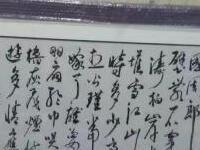 國周郎
壁亂石穿
濤拍岸
堆雪江山
時多少
公瑾當
嫁了雄姿
羽扇綸巾笑
檣灰飛煙
遊多情